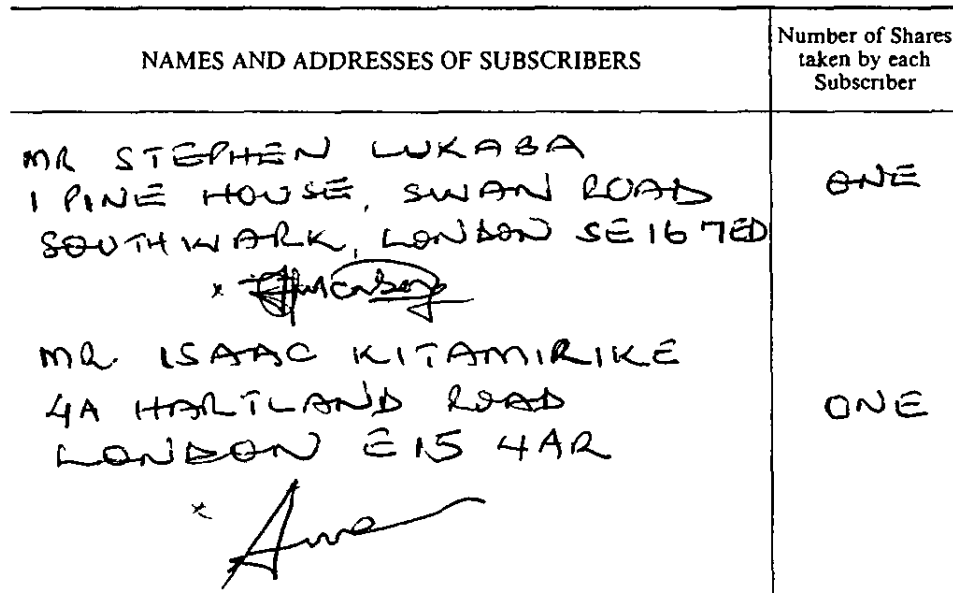 NAMES AND ADDRESSES OF SUBSCRIBERS
Number of Shares
taken by each
Subscriber
MR STEPHEN LUKABA
1 PINE HOUSE, SWAN ROAD
SOUTHWARK, LONDON SE16 7ED
ONE
x
MR. ISAAC KITAMIRIKE
4A HARTLAND ROAD
LONDON E15 4AR
ONE
x